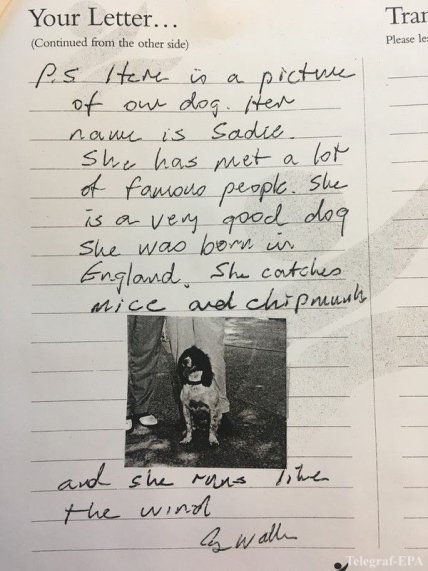 Your Letter...
(Continued from the other side)
P.S Here is a picture
of our dog. Her
name is Sadie.
She has met a lot
of famous people. She
is a very good dog
She was born in
England. She catches
mice and chipmunks
and she runs like
the wind
G. Walker
Tran
Please lea
Telegraf-EPA